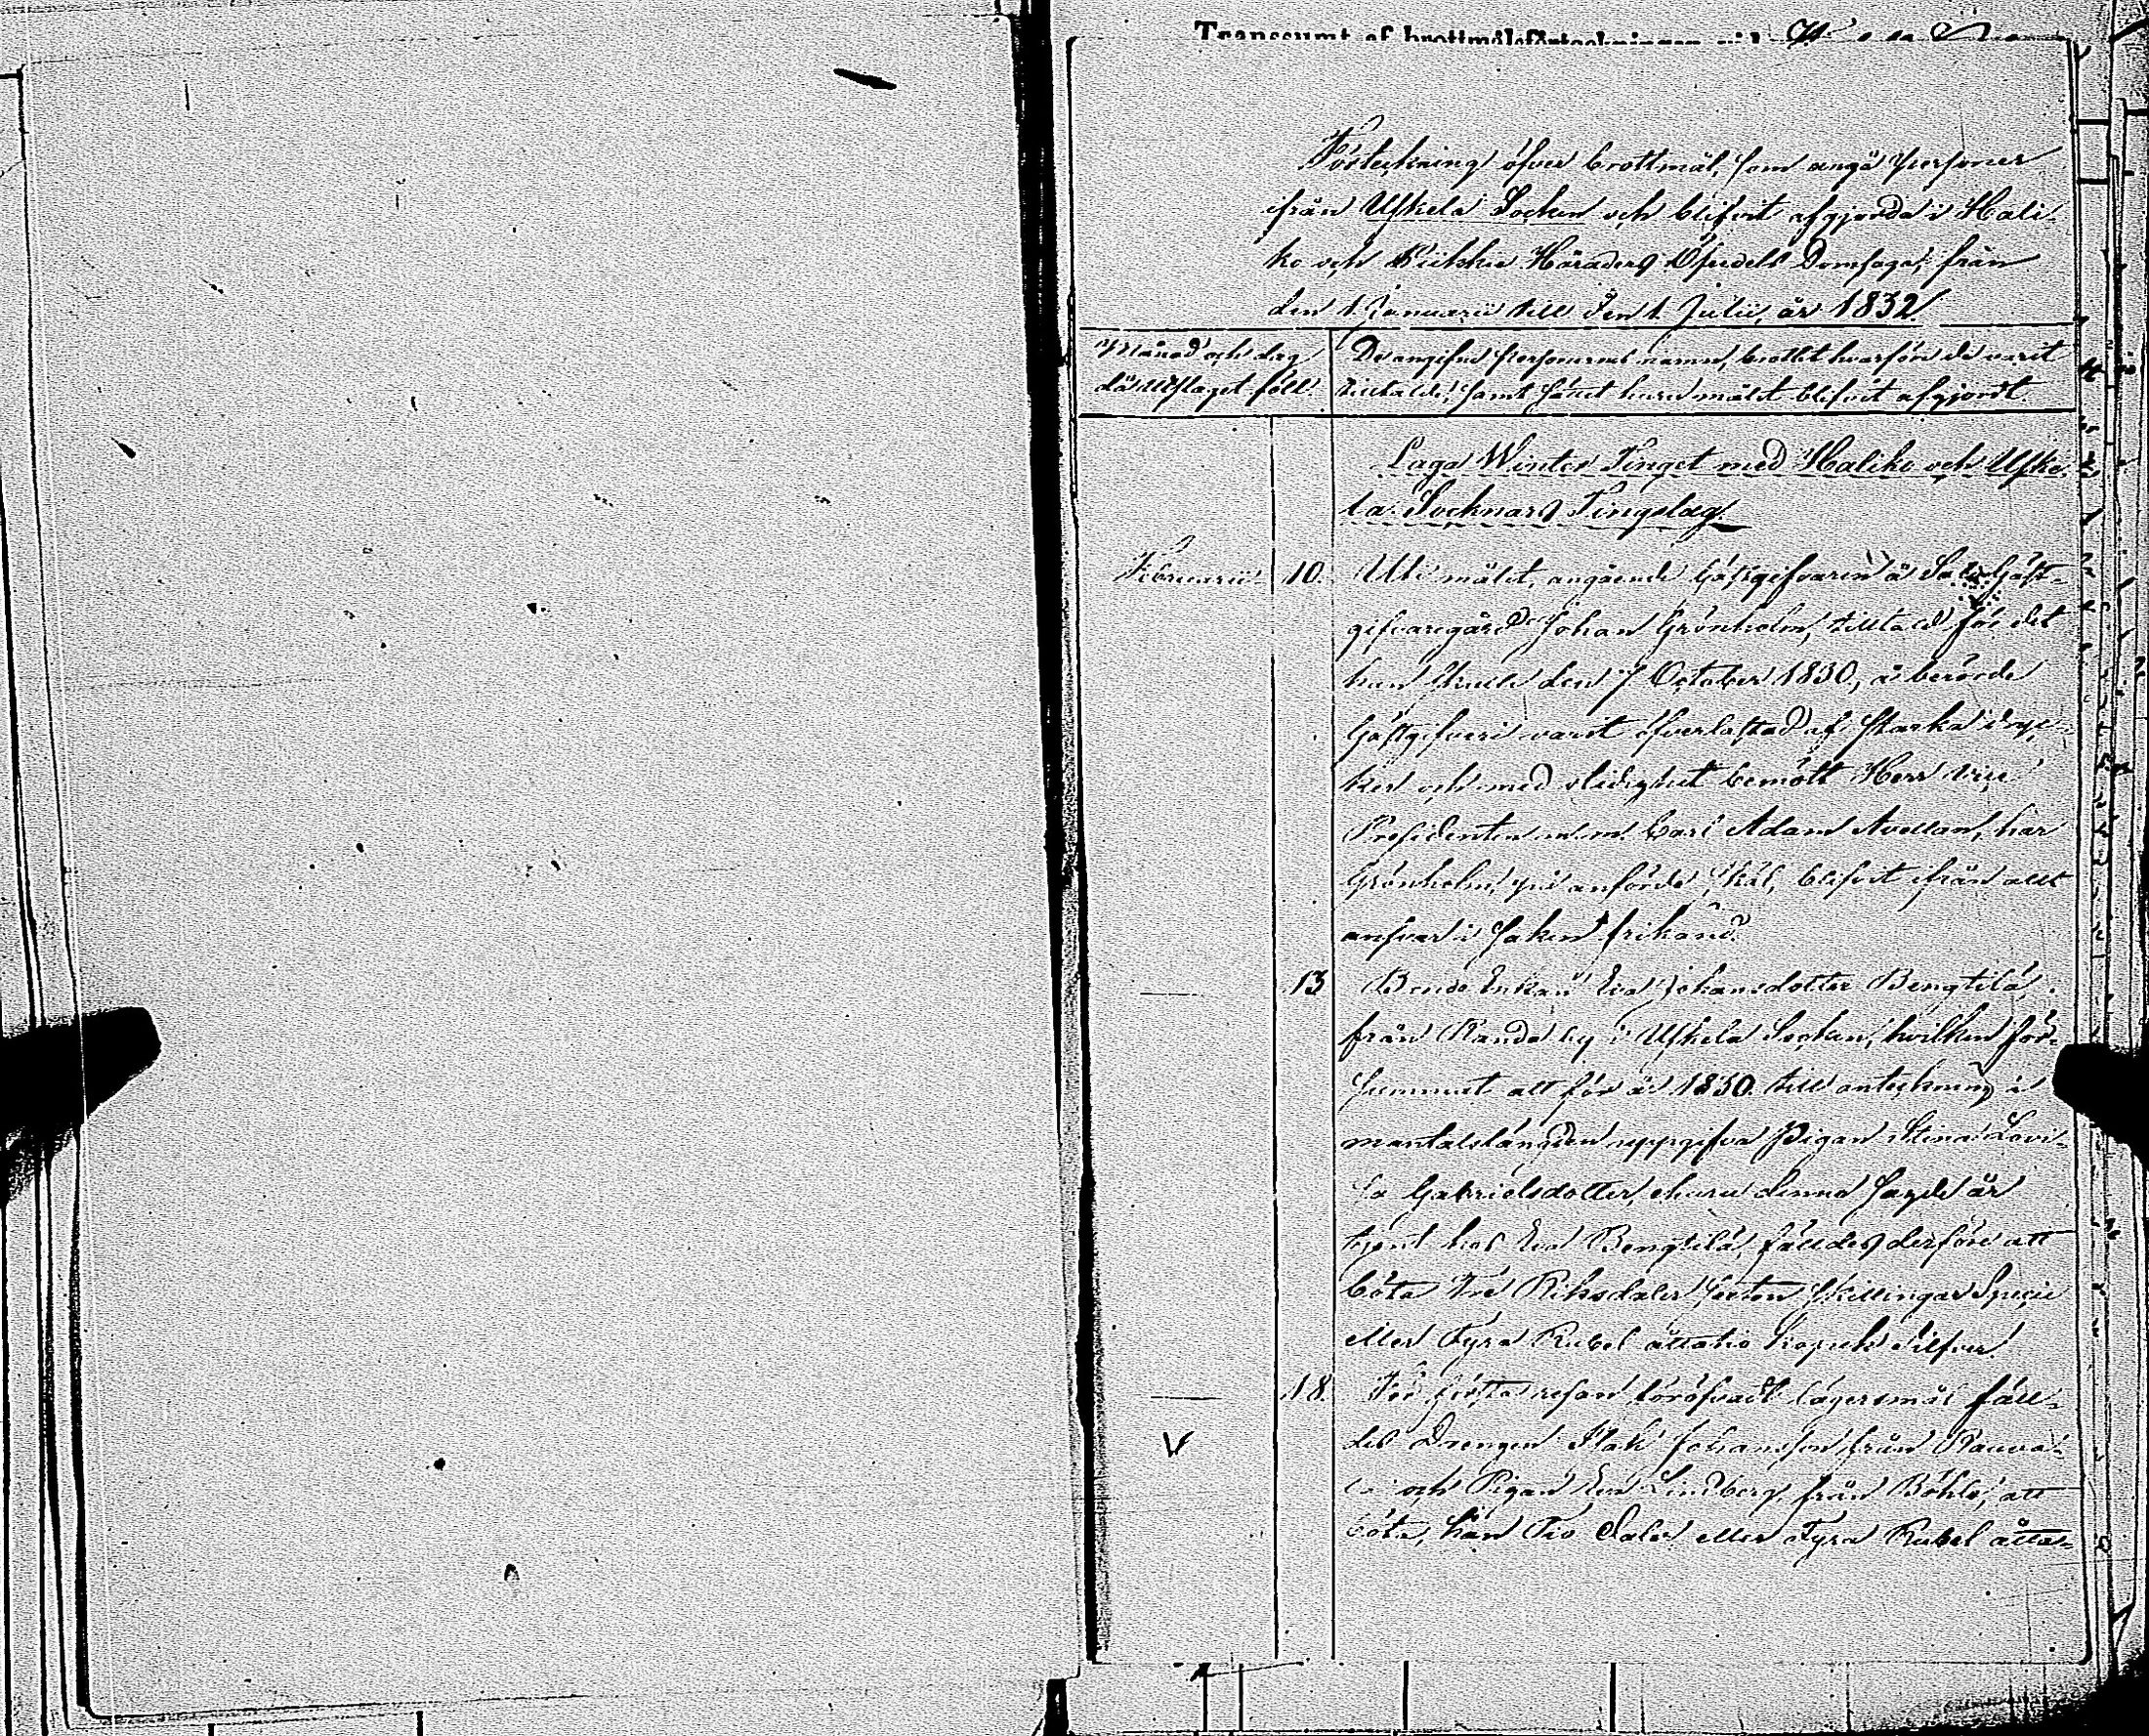 Transsumt af brottmålsförteckningen vid
Förteckning öfver brottmål, som angå personer
ifrån Uskela Socken och blifvit afgjorda i Hali-
ko och Piikkie Häraders Öfredels Domsaga, från
den 1. Januarii till den 1. Julii, år 1832.
Månad och dag
då Utslaget föll.
De angifne personernes namn, brottet hvarföre de varit
tilltalde, samt sättet huru målet blifvit afgjordt.
Laga Winter Tinget med Haliko och Uske-
la Socknars Tingslag.
Februarii 10. Uti målet, angående Gästgifvaren å Salo Gäst-
gifvaregård Johan Grönholm, tilltalad för det
han skulle den 7 October 1830, å berörde
Gästgifveri varit öfverlastad af starka dryc-
ker och med olidighet bemött Herr Vice
Presidenten m.m. Carl Adam Avellan, har
Grönholm, på anförde skäl, blifvit ifrån allt
answar i saken frikänd.
13 Bonde Enkan Eva Johansdotter Bengtilä,
från Kanda by i Uskela Socken, hvilken för-
summat att för år 1830 till anteckning i
mantalslängden uppgifva Pigan Stina Lovi-
sa Gabrielsdotter, ehuru denna sagde år
tjent hos Eva Bengtilä, fälldes derföre att
böta Tre Riksdaler sexton skillingar Specie
eller Fyra Rubel åttatio kopek Silfver.
18. För första resan föröfvadt lägersmål fäll-
des Drengen Isak Johansson från Rauva-
la och Pigan Eva Lindberg från Böhle, att
böta, han Tio Daler eller Fyra Rubel åtta-
V